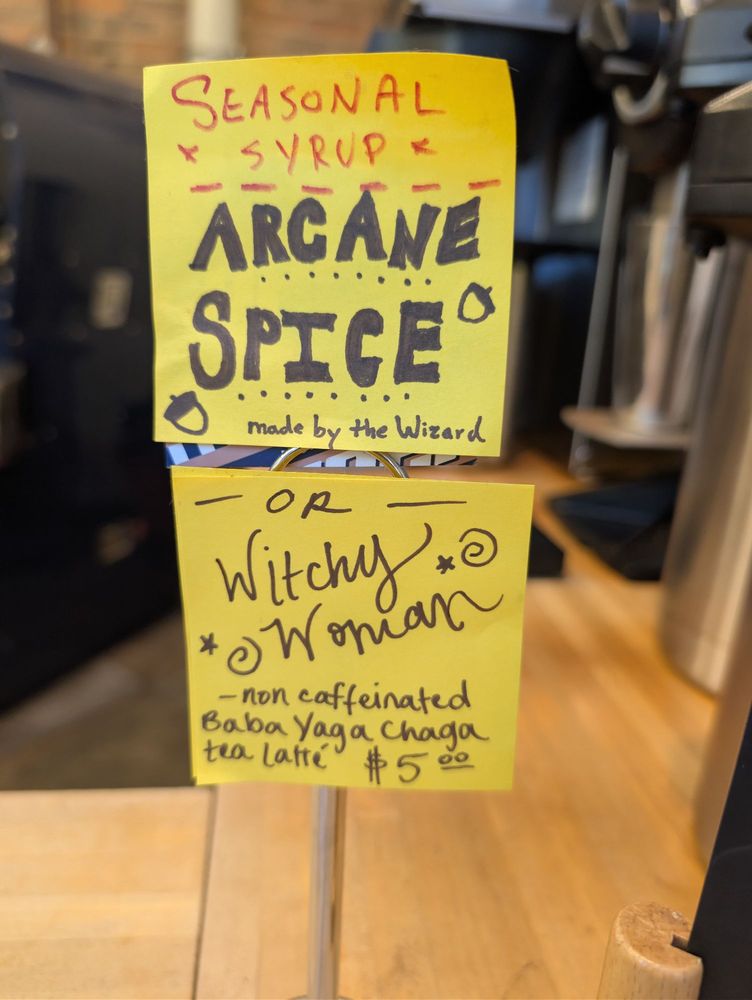 SEASONAL
* SYRUP *
ARCANE
SPICE
made by the Wizard
- OR -
Witchy
Woman
- non caffeinated
Baba Yaga Chaga
tea latté $5.00